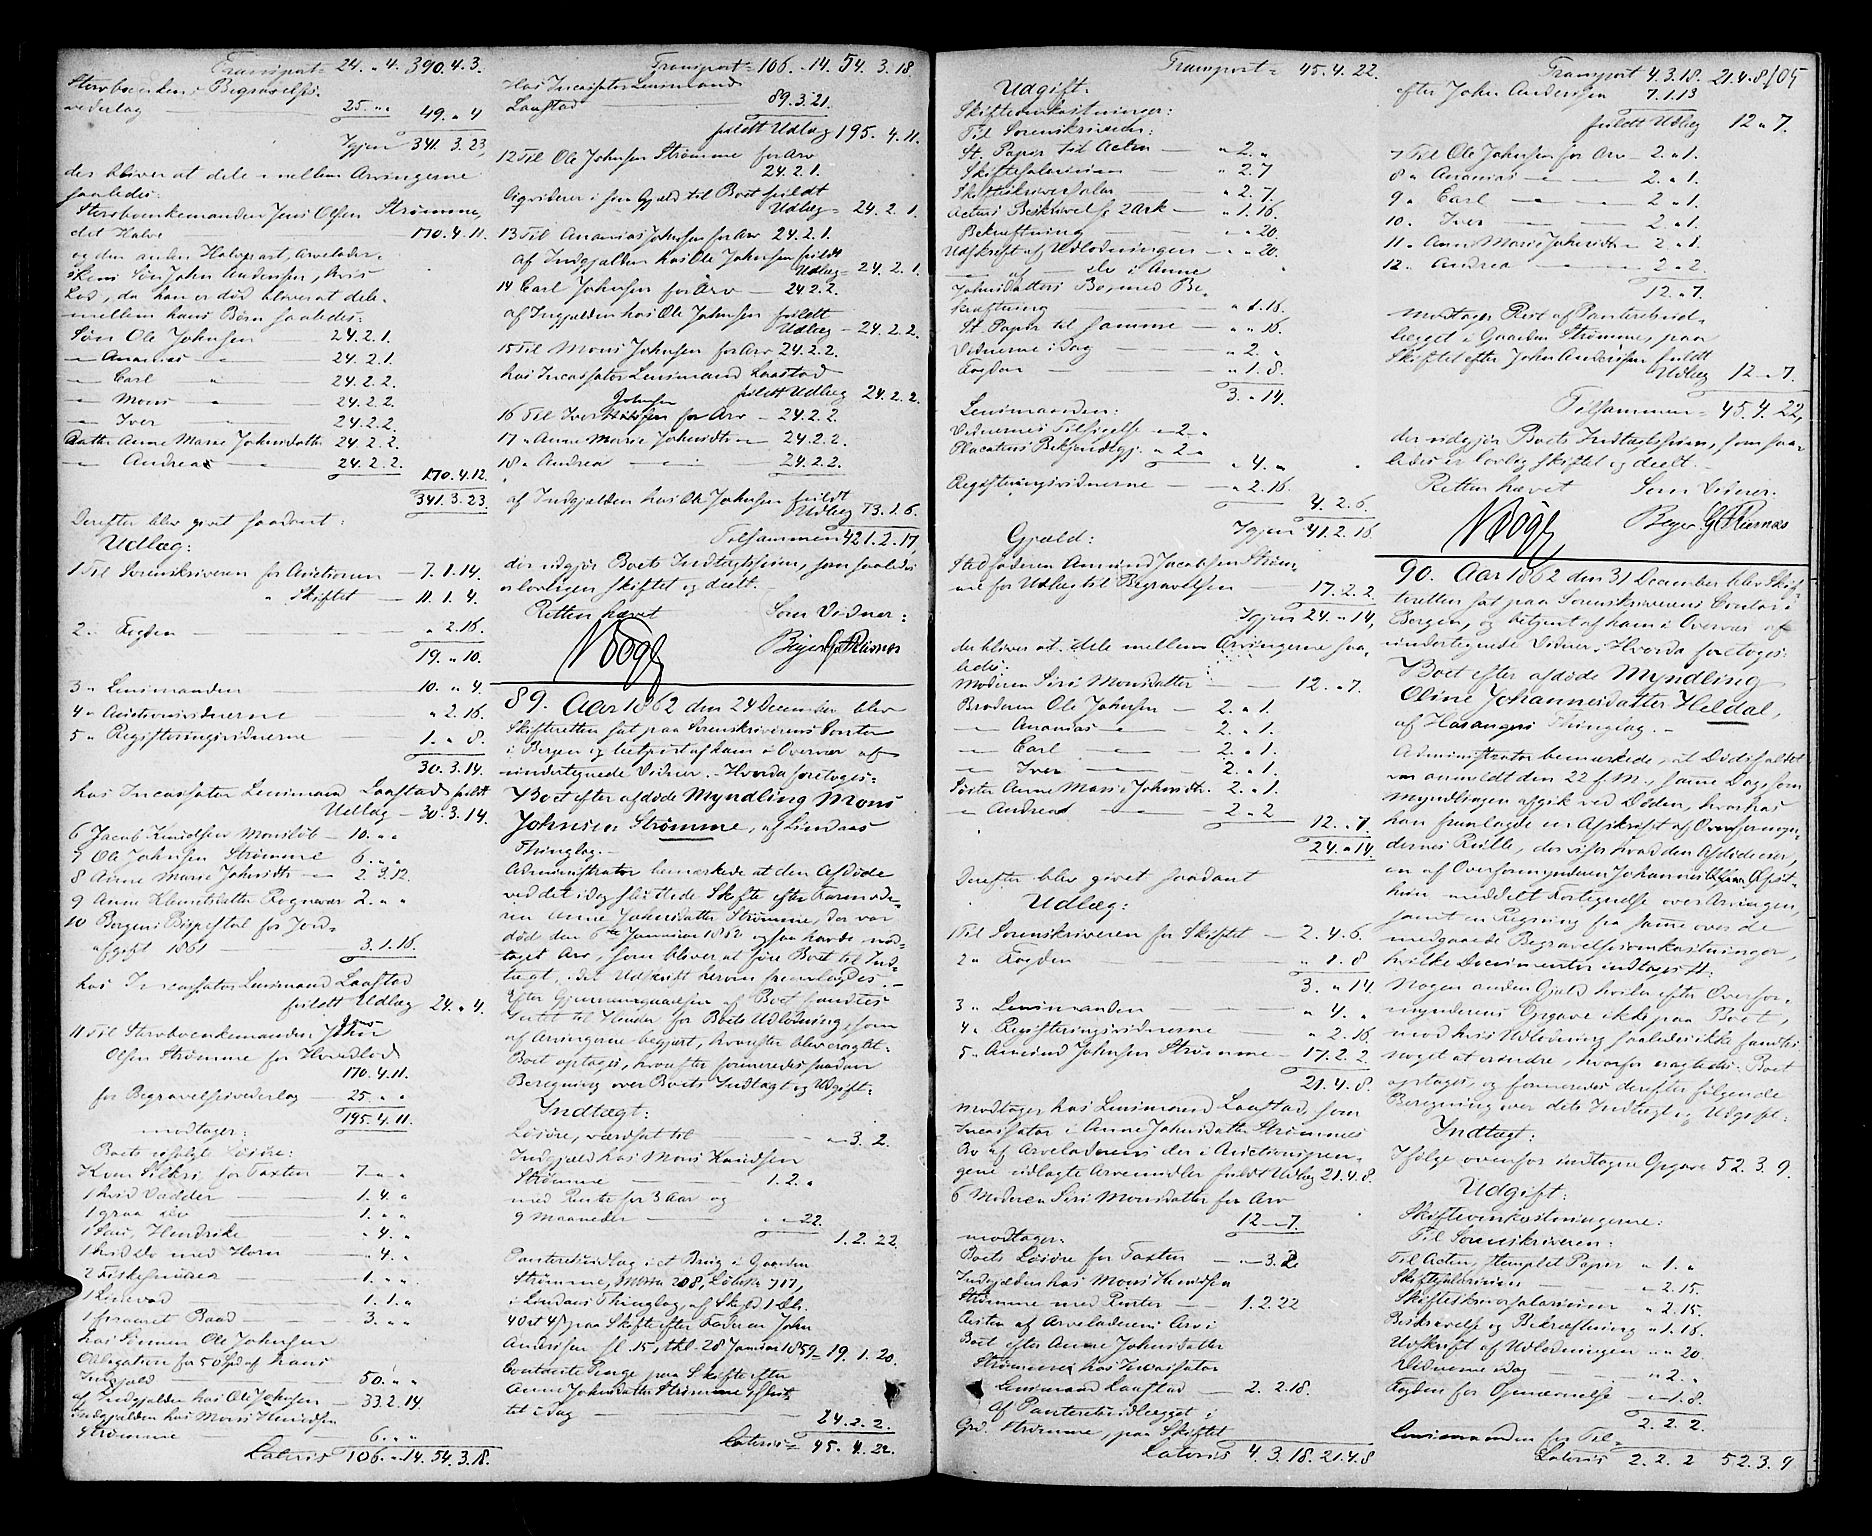 Transport = 24. " 4. 390. 4. 3.
Stervboenkens Begravelses-
vederlag 25. " " 49. " 4
Igjen 341. 3. 23,
der bliver at dele imellem Arvingerne
saaledes:
Stervboenkemanden Jens Olsen Strømme,
det Halve 170. 4. 11.
og den anden Halvpart, Arvelader-
skens Søn John Anderssen, hvis
Lod, da han er død bliver at dele
mellem hans Børn saaledes:
Søn Ole Johnsen 24. 2. 1.
" Ananias " 24. 2. 1.
" Carl " 24. 2. 2.
" Mons 24. 2. 2.
" Iver 24. 2. 2.
Datter Anne Marie Johnsdatter 24. 2. 2.
" Andrea 24. 2. 2.
170. 4. 12.
341. 3. 23.
Derefter blev givet saadant:
Udlæg:
1 Til Sorenskriveren for Auctionen 7. 1. 14.
" Skiftet 11. 1. 4.
2. Fogden " 2. 16.
19. " 10.
3 " Lensmanden 10. " 4.
4 " Auctionsvidnerne " 2. 16.
5 " Registeringsvidnerne 1. " 8.
30. 3. 14.
hos Incassator Lensmand Laastad fuldt
Udlæg 30. 3. 14.
6 Jacob Knudsen Monsløb 10. " "
7 Ole Johnsen Strømme 6. " "
8 Anne Marie Johnsdtr 2 3. 12.
9 Anne Rognevær 2. " "
10 Bergens Bispestol for Jord-
afgift 1861 3. 1. 16.
hos Incassator Lensmand Laastad
fuldt Udlæg 24. " 4.
11 Til Stervboenkemanden Jens
Olsen Strømme for Hovedlod
170. 4. 11.
for Begravelsesvederlag 25. " "
195. 4. 11.
modtager:
Boets usolgte Løsøre:
for Taxten 7 " "
1 hvid Vædder 1. 4. "
1 graa do 1. " "
1 Sau, Hendrike " 4. "
1 hvid do med Horn " 4. "
2 1. " "
1 1. 1. "
1 firaaret Baad 3. " "
hos Sønnen Ole Johnsen
Obligation for 50 Spd af hans
Indgjæld 50. " "
af Indgjælden hos Ole Johnsen 33. 2. 14.
Indgjælden hos Mons Knudsen
Strømme 6. " "
Lateris 106. " 14. 54. 3. 18.

Transport = 106. " 14. 54. 3. 18.
hos Incassator Lensmand
Laastad 89. 3. 21.
fuldt Udlæg 195. 4. 11.
12 Til Ole Johnsen Strømme for Arv
24. 2. 1.
liqviderer i sin Gjæld til Boet fuldt
Udlæg 24. 2. 1.
13 Til Ananias Johnsen for Arv 24. 2. 1.
af Indgjælden hos Ole Johnsen fuldt
Udlæg 24. 2. 1.
14 Carl Johnsen for Arv 24. 2. 2.
af Indgjælden hos Ole Johnsen fuldt
Udlæg 24. 2. 2.
15 Til Mons Johnsen for Arv 24. 2. 2.
hos Incassator Lensmand Laastad
fuldt Udlæg 24. 2. 2.
16 Til Iver Johnsen for Arv 24. 2. 2.
17 " Anne Marie Johnsdtr 24. 2. 2.
18 " Andrea 24. 2. 2.
af Indgjælden hos Ole Johnsen fuldt
Udlæg 73. 1. 6.
Tilsammen 421. 2. 17,
der udgjør Boets Indtægtssum, som saaledes
er lovligen skiftet og deelt.
Retten hævet Som Vidner:
Beyer.
89. Aar 1862 den 24 December blev
Skifteretten sat paa Sorenskriverens Contor
i Bergen og betjent af ham i Overvær af
undertegnede Vidner. Hvorda foretoges:
Boet efter afdøde Myndling Mons
Johnsen Strømme, af Lindaas
Thinglag.
Administrator bemærkede at den Afdøde
ved det idag sluttede Skifte efter Farmode-
ren Anne Johnsdatter Strømme, der var
død den 6te Januar 1862 ogsaa havde mod-
taget Arv, som bliver at føre Boet til Ind-
tægt, idet Udskrift herom fremlagdes.
Efter Gjennemgaaelsen af Boet fandtes
Intet til Hinder for Boets Udlodning, som
af Arvingerne begjært, hvorefter blev eragtet:
Boet optages, hvorefter formeredes saadan
Beregning over Boets Indtægt og Udgift:
Indtægt:
Løsøre, værdsat til " 3. 2.
Indgjæld hos Mons Knudsen
Strømme 1. 2. "
med Rente for 3 Aar og
9 Maaneder " " 22.
1. 2. 22.
Panteudlæg i et Brug i Gaarden
Strømme, Matr 208, Løbe No 717,
i Lindaas Thinglag, af Skyld 1 Dlr.
4 Ort 4 ß paa Skifte efter Faderen John
Anderssen fl. 15, thl. 28 Januar 1859 = 19. 1. 20.
Contante Penge paa Skifte efter
Anne Johnsdatter Strømme sluttet
idag 24. 2. 2.
Lateris 45. 4. 22.

Transport = 45. 4. 22.
Udgift:
Skifteomkostninger:
Til Sorenskriveren:
St. Papir til Acten " 2. "
Skiftesalarium " 2. 7
Skifteskriversalar " 2. 7.
Actens Beskrivelse 2 Ark " 1. 16.
Bekræftning " " 20.
Udskrift af Udlodningen " " 20.
" af do i Anne
Johnsdatters Bo, med Be-
kræftning " 1. 16.
St. Papir til samme " " 16.
Vidnerne i Dag " 2. "
Fogden " 1. 8.
3. " 14.
Lensmanden:
Vidnernes Tilsigelse " 2. "
Placatens Bekjendtgj. " 2 "
" 4. "
Registeringsvidnerne " 2. 16.
4. 2. 6.
Igjen 41. 2. 16.
Gjæld:
Stedfaderen Amund Jacobsen Strøm-
me for Udlæg til Begravelsen
17. 2. 2.
Igjen 24. " 14,
der bliver at dele mellem Arvingerne saa-
ledes:
Moderen Siri Monsdatter 12. " 7.
Broderen Ole Johnsen 2. " 1.
" Ananias " 2. " 1.
" Carl " 2. " 1.
" Iver 2. " 1.
Søster Anne Marie Johnsdtr. 2. " 1.
" Andrea 2. " 2
12. " 7.
24. " 14.
Derefter blev givet saadant
Udlæg:
1 Til Sorenskriveren for Skiftet 2. 4. 6.
2 " Fogden " 1. 8
3. " 14.
3 " Lensmanden " 4. "
4 " Registeringsvidnerne " 2. 16
5 " Amund Johnsen Strømme 17. 2. 2.
21. 4. 8.
modtager hos Lensmand Laastad, som
Incassator i Anne Johnsdatter Strømmes
Bo af Arveladerens der i Auctionspen-
gene udlagte Arvemidler fuldt Udlæg 21. 4. 8.
6 Moderen Siri Monsdatter for Arv
12 " 7.
modtager:
Boets Løsøre for Taxten " 3. 2.
Indgjælden hos Mons Knudsen
Strømme med Renter 1. 2. 22
Resten af Arveladerens Arv i
Boet efter Anne Johnsdatter
Strømme hos Incassator
Lensmand Laastad 2. 2. 18.
Af Panteudlægget i
Grd. Strømme, paa Skiftet
Lateris 4. 3. 18. 21. 4. 8

Transport 4. 3. 18. 21. 4. 8/105
efter John Anderssen 7. 1. 13
fuldt Udlæg 12 " 7.
7 Til Ole Johnsen for Arv 2. " 1.
8 " Ananias 2. " 1.
9 " Carl 2. " 1.
10. " Iver 2. " 1.
11 " Anne Marie Johnsdtr 2. " 1.
12 " Andrea 2. " 2.
12. " 7.
modtager Rest af Panteud-
lægget i Gaarden Strømme, paa
Skiftet efter John Anderssen fuldt
Udlæg 12 " 7.
Tilsammen 45. 4. 22,
der udgjør Boets Indtægtssum, som saa-
ledes er lovlig skiftet og deelt.
Retten hævet Som Vidner:
Beyer.
90. Aar 1862 den 31 December blev Skif-
teretten sat paa Sorenskriverens Contor i
Bergen, og betjent af ham i Overvær af
undertegnede Vidner. Hvorda foretoges:
Boet efter afdøde Myndling
Oline Johannesdatter Heldal,
af Hosangers Thinglag.
Administrator bemærkede, at Dødsfaldet
var anmeldt den 22 f. M., samme Dag, som
Myndlingen afgik ved Døden, hvorhos
han fremlagde en Afskrift af Overformyn-
dernes Rulle, der viser hvad den Afdøde eier,
en af Overformynderen Johannes
ham meddelt Fortegnelse over Arvingen,
samt en Regning fra samme over de
medgaaede Begravelsesomkostninger,
hvilke Documenter indtages H:
Nogen anden Gjæld hviler efter Overfor-
mynderens Opgave ikke paa Boet,
mod hvis Udlodning saaledes ikke fandtes
noget at erindre, hvorfor eragtedes: Boet
optages, og formeredes derefter følgende
Beregning over dets Indtægt og Udgift:
Indtægt:
Ifølge ovenfor indtagen Opgave 52. 3. 9.
Udgift:
Skifteomkostningerne:
Til Sorenskriveren:
Til Acten, stemplet Papir " 1. "
Skiftesalarium " 2. 15.
Skifteskriversalarium " 2. 15.
Beskrivelse og Bekræftning " 1. 16.
Udskrift af Udlodningen " " 20.
Vidnerne idag " 2. "
Fogden for Gjennemsyn " 1. 8.
2. 2. 2.
Lensmanden for Til-
Lateris 2. 2. 2 52. 3. 9